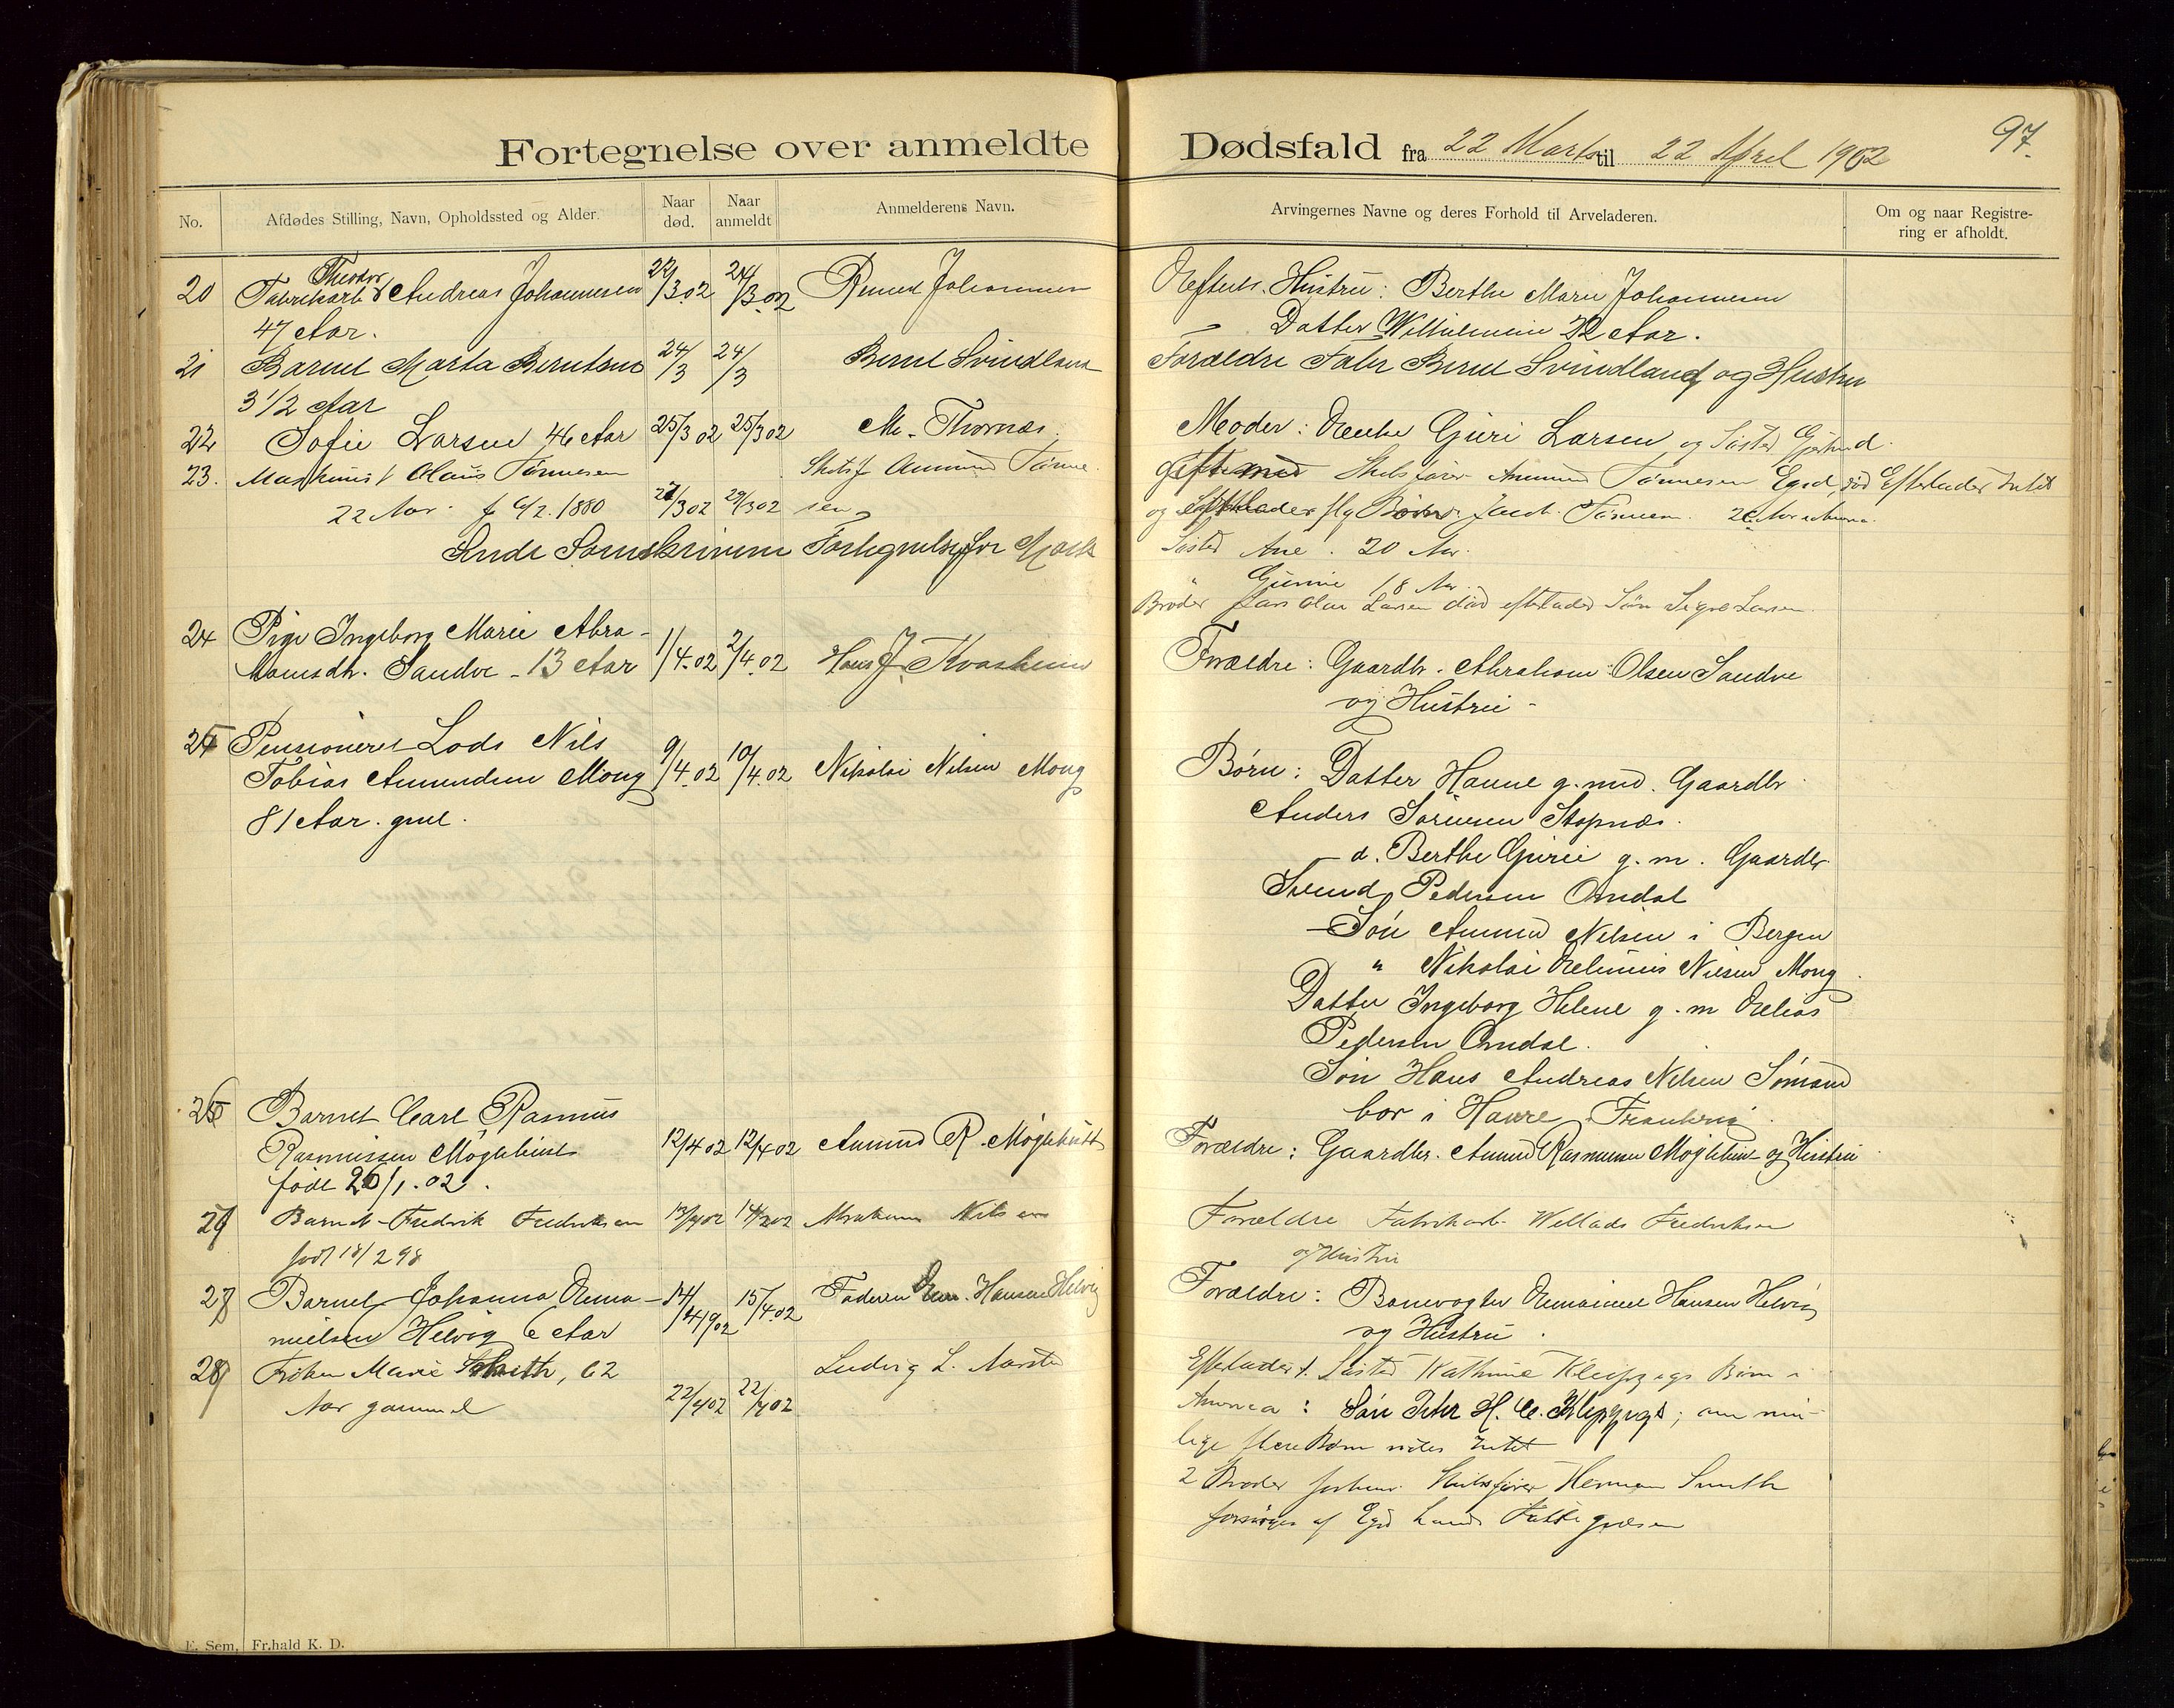 Fortegnelse over anmeldte Dødsfald fra 22 Marts til 22 April 1902
97.
No.
Afdødes Stilling, Navn, Opholdssted og Alder.
Naar død.
Naar anmeldt
Anmelderens Navn.
Arvingernes Navne og deres Forhold til Arveladeren.
Om og naar Registrering er afholdt.
20 Theodor Andreas Johannesen 22/3 02 24/3 02 Johannesen
47 Aar.
Hustru: Berthe Marie Johannesen
Datter 22 Aar.
21 Barnet Marta Berntsen 24/3 24/3 Bernt Svindland
3 1/2 Aar
Forældre Bernt Svindland og Hustru
22 Sofie Larsen 46 Aar 25/3 02 25/3 02 M. Thornæs
Moder: Enke Guri Larsen og Søster
23. Maskinist Olaus Tønnesen
22 Aar f 1880 29/3 02
gift med Amund Tønnesen Egsd, død Efterlader Intet
og efterlader flg Børn
Søster Ane. 20 Aar.
" Gunine 18 Aar.
Broder Lars Olai Larsen død efterlader Søn Larsen.
Sendt Sorenskriveren Fortegnelse for Marts
24 Pige Ingeborg Marie Abra-
hamsdtr. Sandve - 13 Aar 1/4.02 2/4.02 Hans J. Kvasheim
Forældre: Gaardbr. Abraham Olsen Sandve
og Hustru -
25 Pensioneret Lods Nils
Tobias Amundsen Mong 9/4.02 10/4.02 Nikolai Nilsen Mong
81 Aar. gml.
Børn: Datter Hanne g. med. Gaardbr
Anders Sørensen Stapnæs.
d. Berthe Gurie g. m. Gaardbr
Svend Pedersen Omdal
Søn Amund Nilsen i Bergen
" Nikolai Nilsen Mong.
Datter Ingeborg Helene g. m Elias
Pedersen Omdal.
Søn Hans Andreas Nilsen Sømand
bor i Havre, Frankrig.
26 Barnet Carl Rasmus
Rasmussen Møgleheist 12/4 02 12/4 02 Amund R. Møglehust
født 26/1.02.
Forældre: Gaardbr. Amund Rasmussen Møglehust og Hustru
27 Barnet Fredrik Fredriksen 13/4 02 Abraham Nilsen
født 18/2 98
Forældre Fabrikarb. Fredriksen
og Hustru
Barnet Johanna Ema-
nuelsen Helvig 6 Aar 14/4 1902 15/4.02 Faderen Em. Hansen Helvig
Forældre: Banevogter Emanuel Hansen Helvig
og Hustru.
Frøken Marie Smith, 62
Aar gammel 22/4 02 22/4 02 Ludvig L. Aarstad
Efterlader 1. Søster Kathrine Børn i
Amerika: Søn Peter H. C.
lige flere Børn vides Intet
2 Broder forhenv. Skibsfører Herman Smith
forsørges af Egsd Lands Fattigvæsen
E. Sem, Fr.hald K. D.